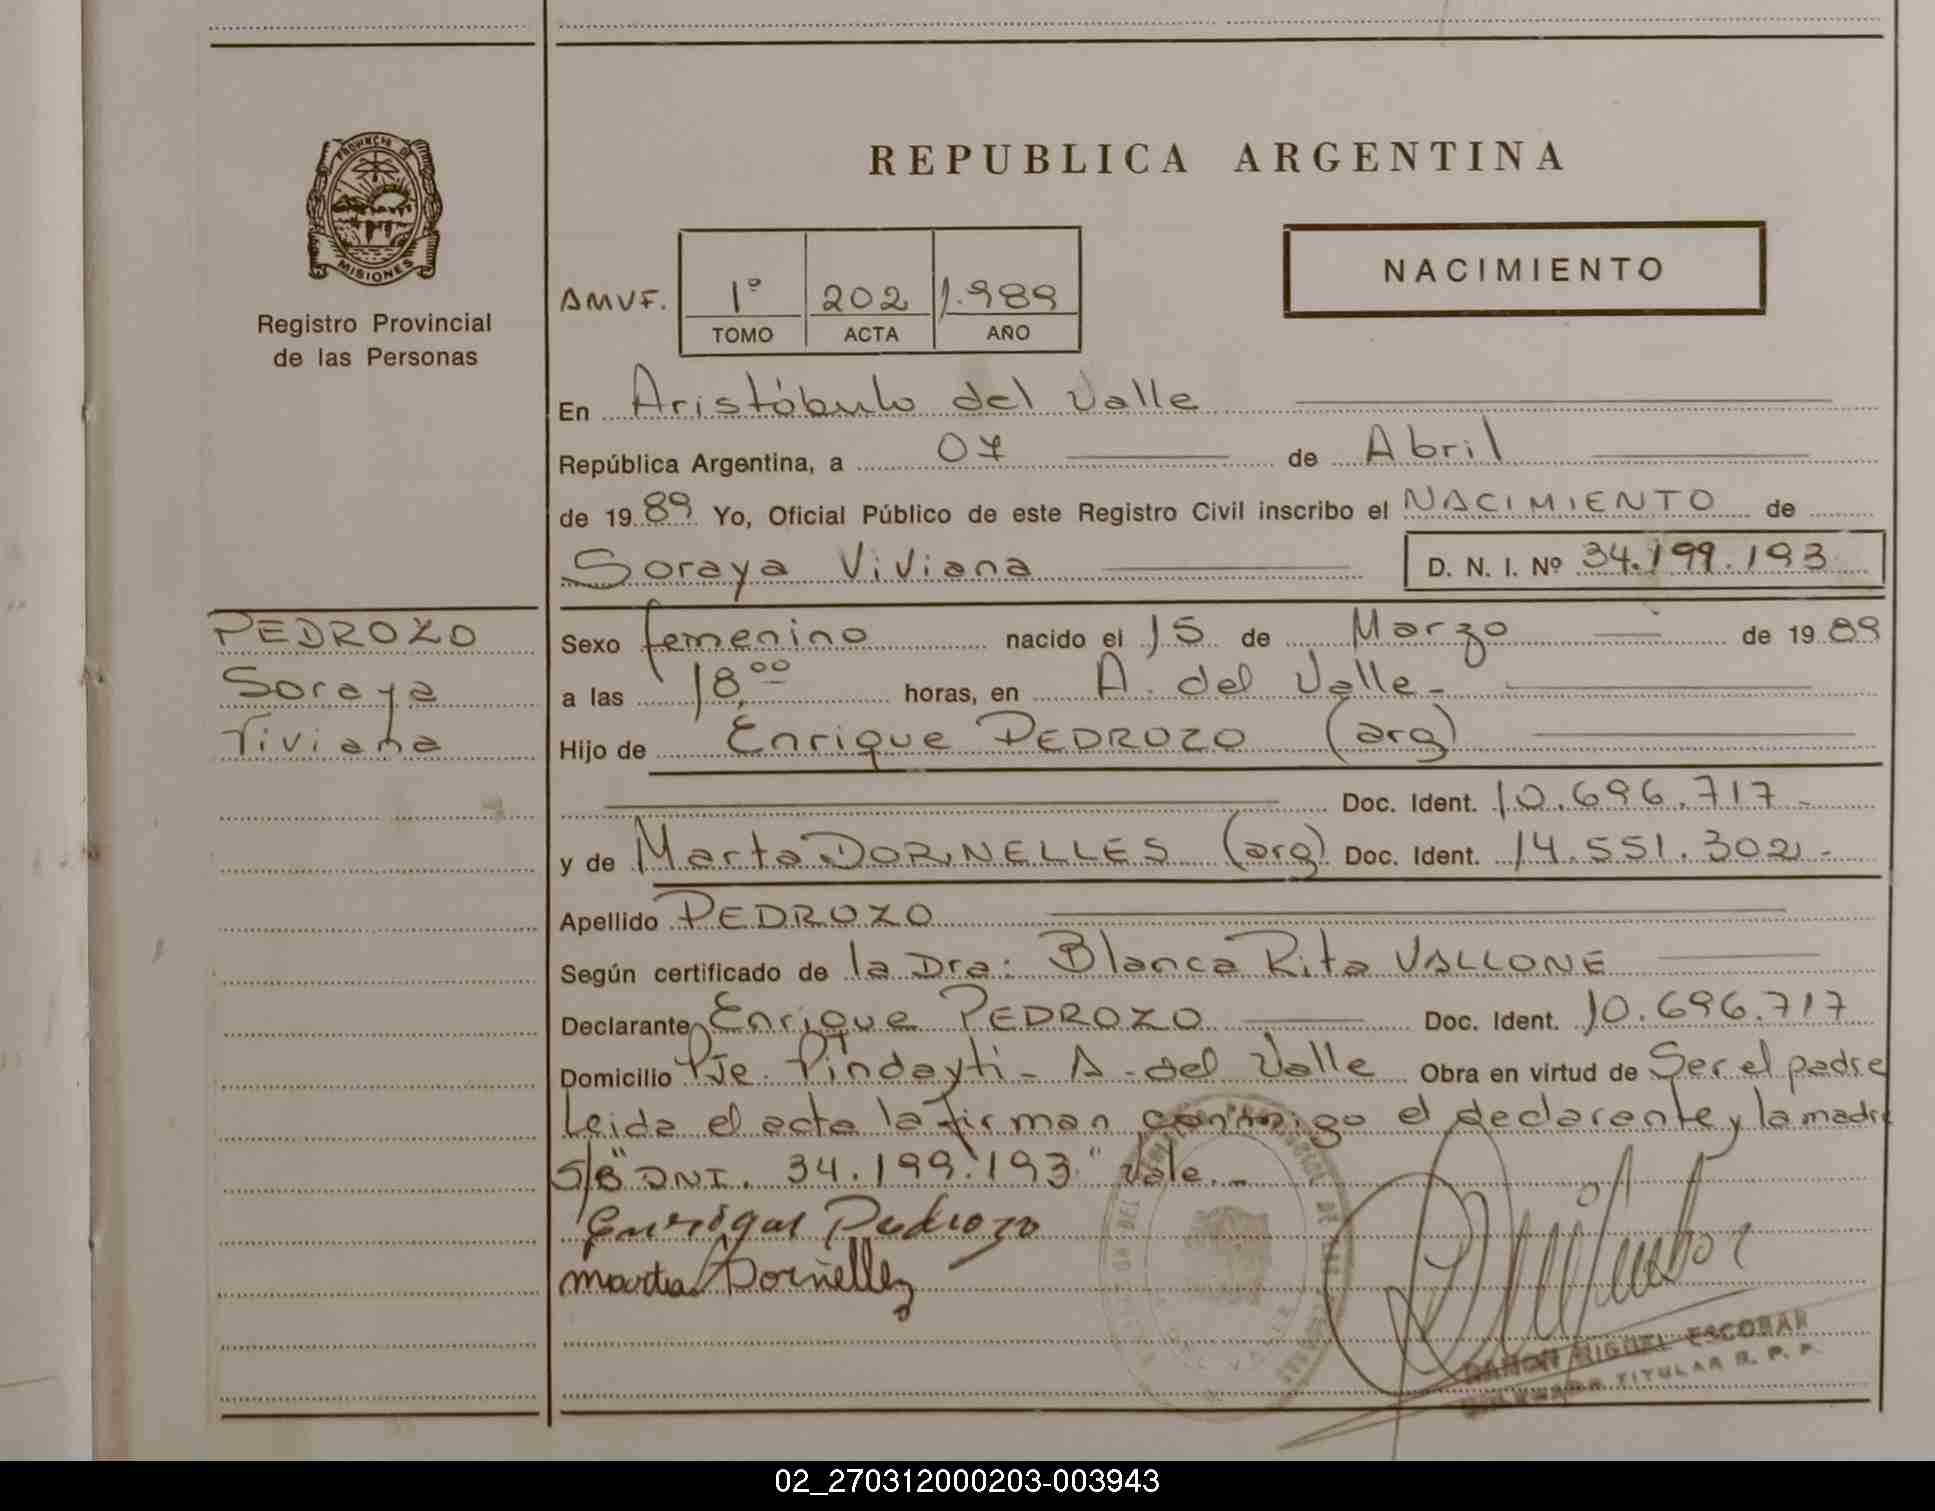 PROVINCIA DE
MISIONES
Registro Provincial
de las Personas
REPUBLICA ARGENTINA
NACIMIENTO
AMVF. 1º 202 1.989
TOMO ACTA AÑO
En Aristóbulo del Valle
República Argentina, a 07 de Abril
de 1989 Yo, Oficial Público de este Registro Civil inscribo el NACIMIENTO de
Soraya Viviana D. N. I. Nº 34.199.193
PEDROZO
Soraya
Viviana
Sexo femenino nacido el 15 de Marzo de 1989
a las 18,00 horas, en A. del Valle-
Hijo de Enrique PEDROZO (arg)
Doc. Ident. 10.696.717-
y de Marta DORNELLES (arg) Doc. Ident. 14.551.302.-
Apellido PEDROZO
Según certificado de la Dra: Blanca Rita VALLONE
Declarante Enrique PEDROZO Doc. Ident. 10.696.717
Domicilio Pje. Pindayti- A. del Valle Obra en virtud de Ser el padre
Leida el acta la firman conmigo el declarante y la madre
S/B "DNI. 34.199.193." Vale.-
Enrique Pedrozo
marta Dornellez
RAMON MIGUEL ESCOBAR
TITULAR R. P. P.
02_270312000203-003943